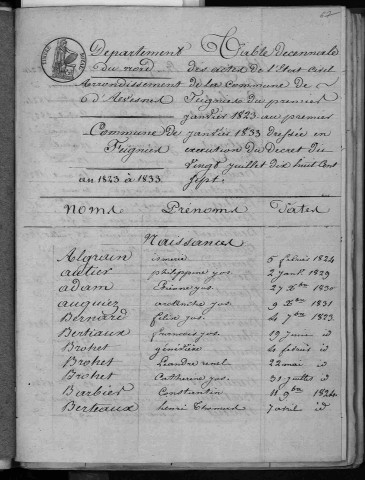 Département Table decennale
du nord des actes de l'Etat Civil
Arrondissement de la Commune de
d'Avesnes Feignies du premier
janvier 1823 au premier
Commune de janvier 1833 dressée en
Feignies execution du Decret du
Vingt juillet dix huit Cent
an 1823 à 1833 Sept.
Noms Prénoms Dates
Naissances
Algrain ismerie 5 février 1824
autier philippine jos. 2 janv. 1829
adam jos. 27 Xbre 1830
auquiez jos. 9 Xbre 1831
Bernard félix jos. 4 7bre 1823
Bertiaux francois jos. 19 juin id
Brohet géneviève 4 février id
Brohet Leandre 22 mai id
Brohet Catherine jos. 31 juillet id
Barbier Constantin 11 9bre 1824
Berteaux henri 7 avril id